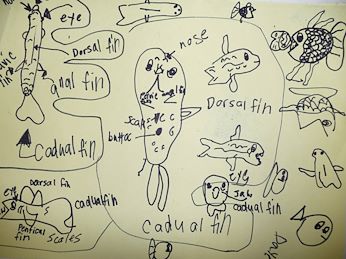 eye
Dorsal fin
anal fin
Cadual fin
eye
Dorsal fin
cadualfin
Pentical
fin
scales
nose
scales
buttox
Dorsal fin
eye
Jab
cadual fin
Cadual fin